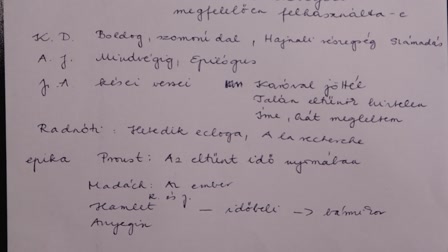 megfelelően felhasználta-e
K. D. Boldog, szomorú dal, Hajnali részegség Számadás
A. J. Mindvégig, Epilógus
J. A kései versei Karóval jöttél
Talán eltűnök hirtelen
Íme, hát megleltem
Radnóti: Hetedik ecloga, A la recherche
epika Proust: Az eltűnt idő nyomában
Madách: Az ember
R. és J.
Hamlet — időbeli → bármikor
Anyegin